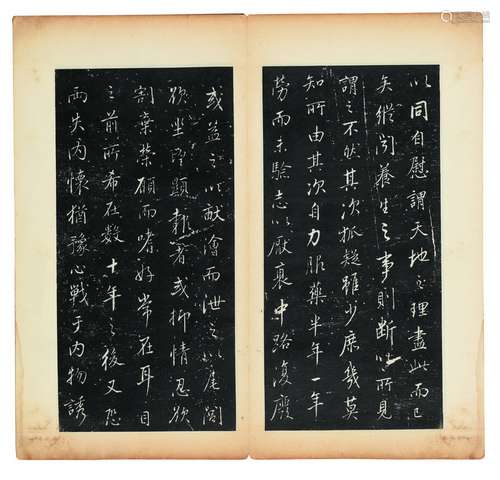 以同自慰謂天地之理盡此而已
矣縱聞養生之事則斷以所見
謂之不然其次狐疑雖少庶幾莫
知所由其次自力服藥半年一年
勞而未驗志以厭衰中路復廢
或益之以畎澮而泄之以尾閭
欲坐望顯報者或抑情忍欲
割棄榮願而嗜好常在耳目
之前所希在數十年之後又恐
兩失內懷猶豫心戰于內物誘